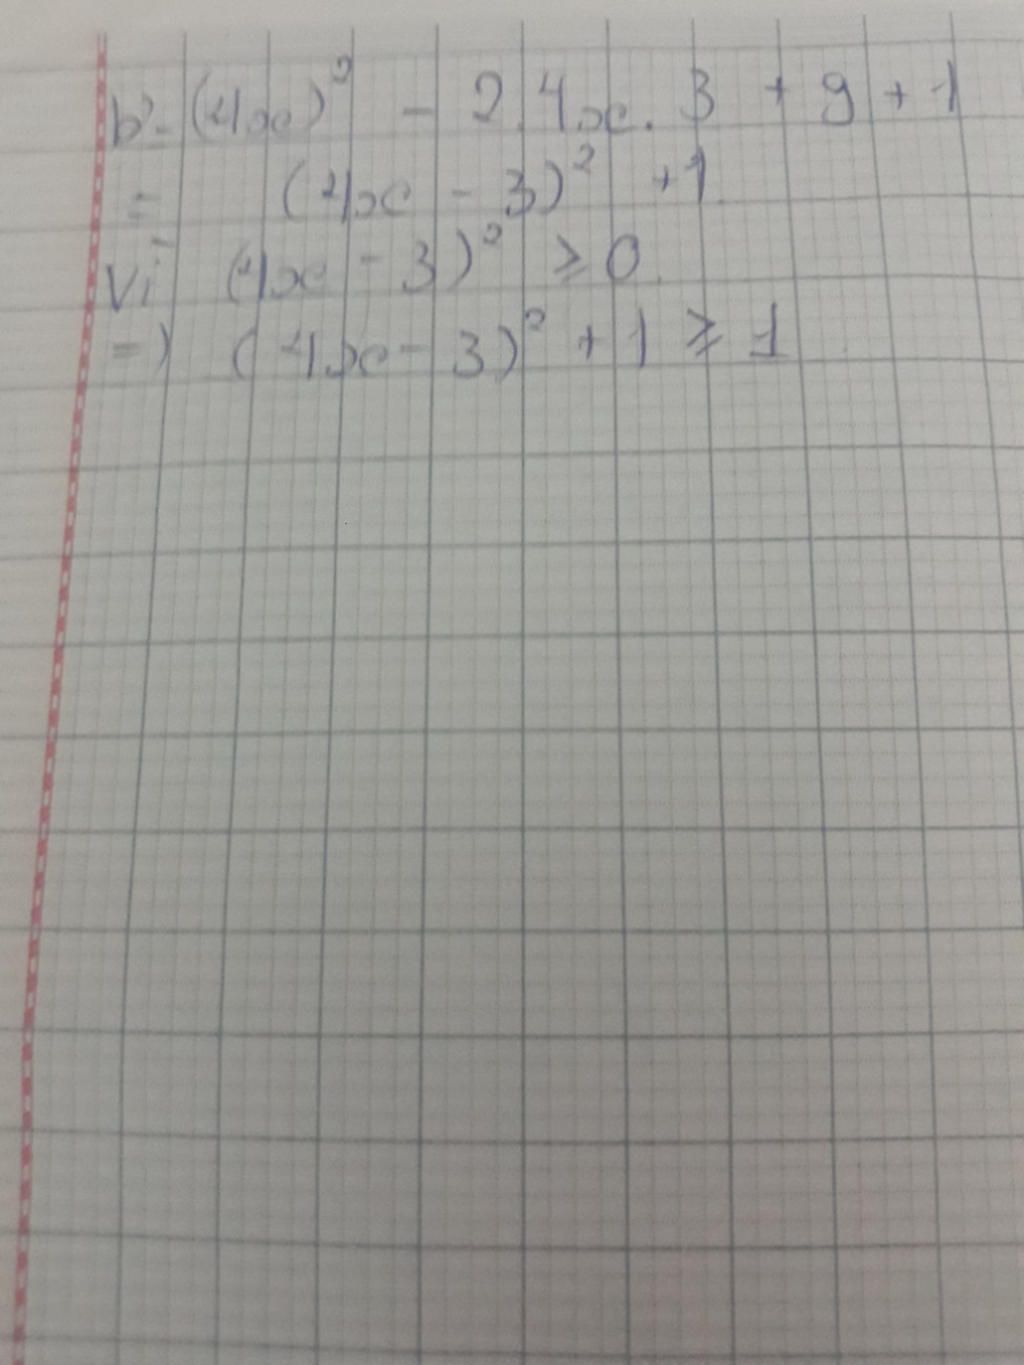 b. (4x)² - 2.4x.3 + 9 + 1
= (4x - 3)² + 1
Vì (4x - 3)² ≥ 0
=) (4x - 3)² + 1 ≥ 1